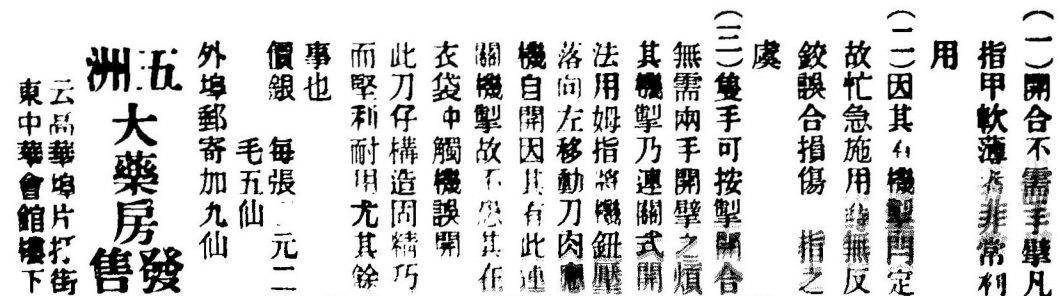 (一)開合不需手擘凡
指甲軟薄者非常利
用
(二)因其有機掣閂定
故忙急施用時無反
鉸誤合損傷 指之
虞
(三)隻手可按掣開合
無需兩手開擘之煩
其機掣乃連關式開
法用姆指將機鈕壓
落向左移動刀肉應
機自開因其有此連
關機掣故不恐其在
衣袋中觸機誤開
此刀仔構造固精巧
而堅利耐用尤其餘
事也
價銀 每張 元二
毛五仙
外埠郵寄加九仙
五洲大藥房發售
云高華埠片打街
東中華會館樓下